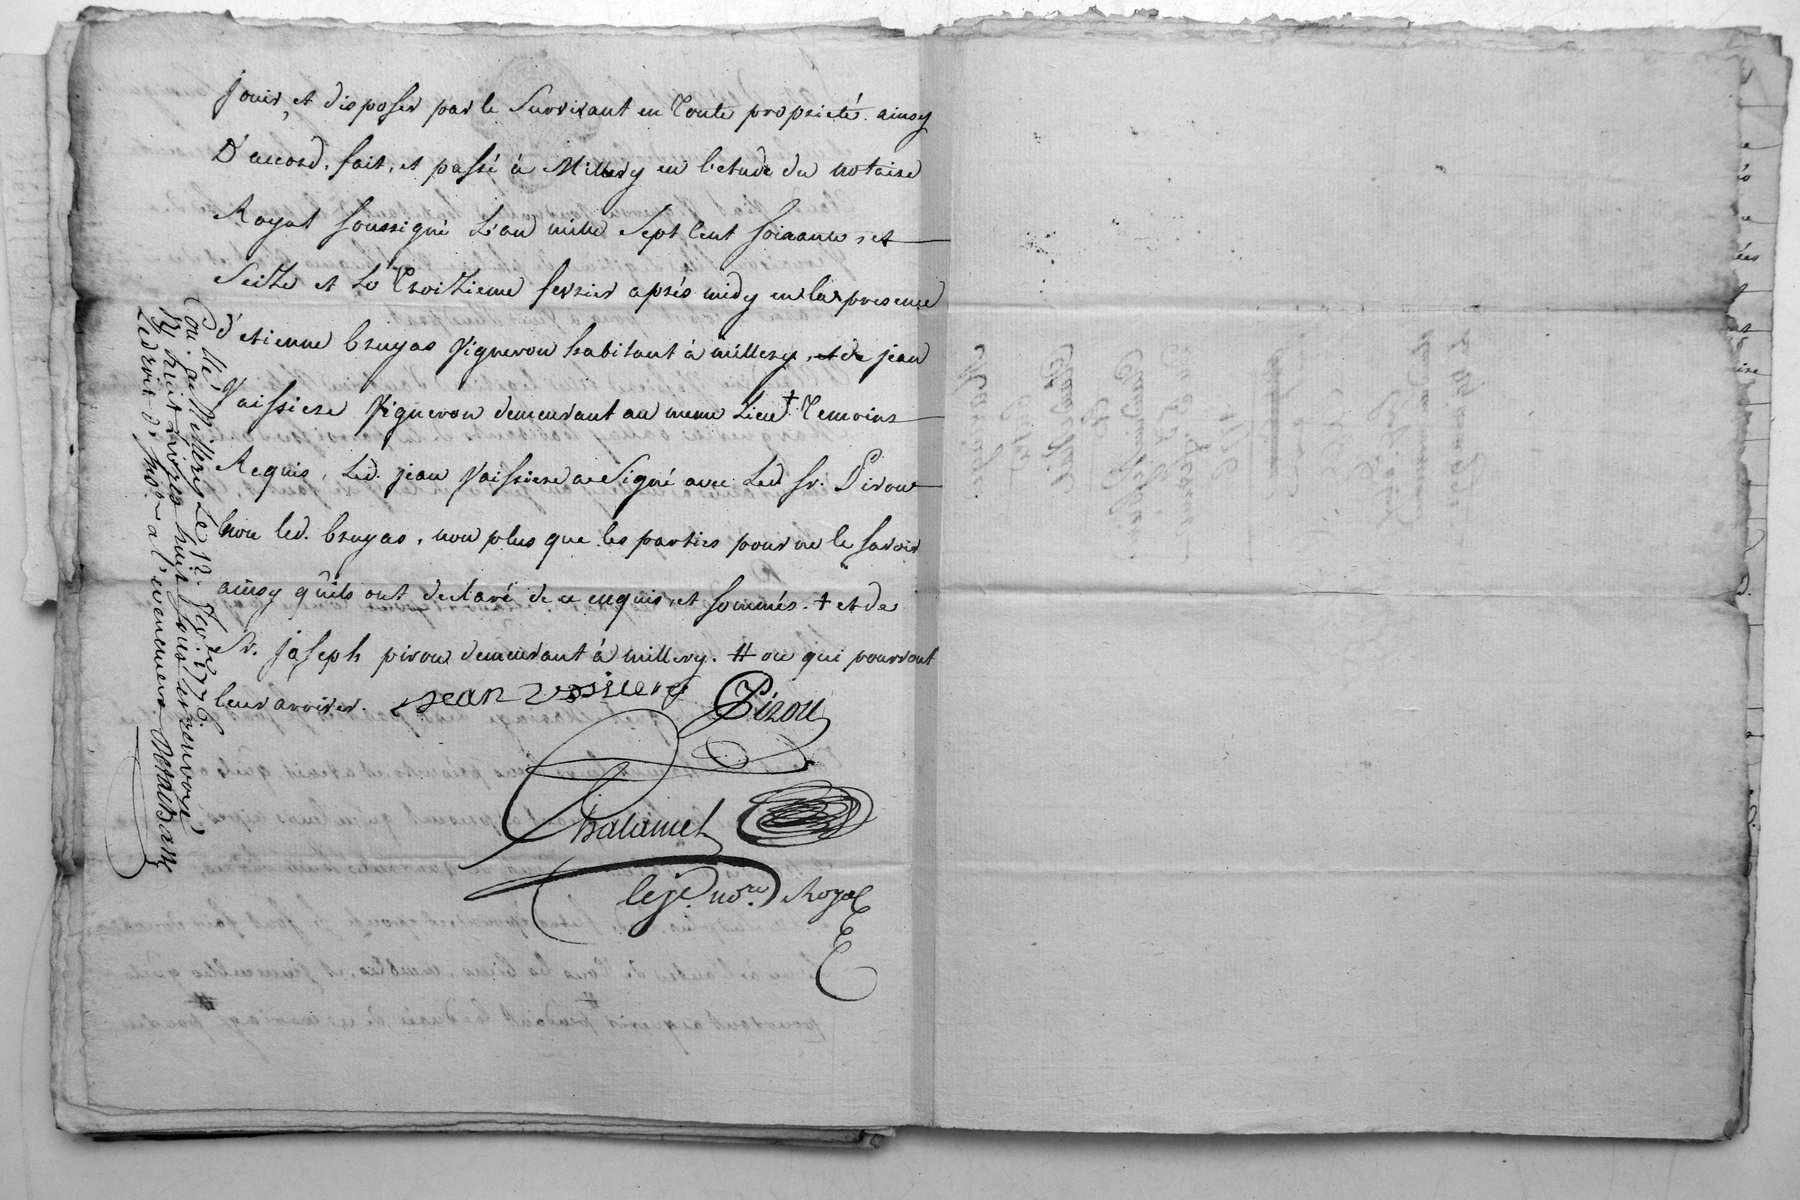 jouir, et disposer par le Survivant en Toute propriété. ainsy
D'accord, fait, et passé à Millery en l'etude du notaire
Royal soussigné L'an mille Sept Cent soixante, et
Seize et Le Treizieme fevrier aprés midy en la presence
d'etienne bruyas Vigneron habitant à millery, et de jean
Vaissiere Vigneron demeurant au meme Lieu + Temoins
Requis, Led. jean Vaissiere a Signé avec Led sr. Pirou
non led. bruyas, non plus que les parties pour ne le savoir
ainsy qu'ils ont declaré de ce enquis, et sommés. + et de
Sr. joseph pirou demeurant à millery. # ou qui pourront
leur arriver. jean vessiere Pirou
Chalamel
lejd. no.re Royal
Con.lé à Millery Le 13. fev. 1776.
huit Livres huit sous renvoyé
Le droit d' à l'evenement